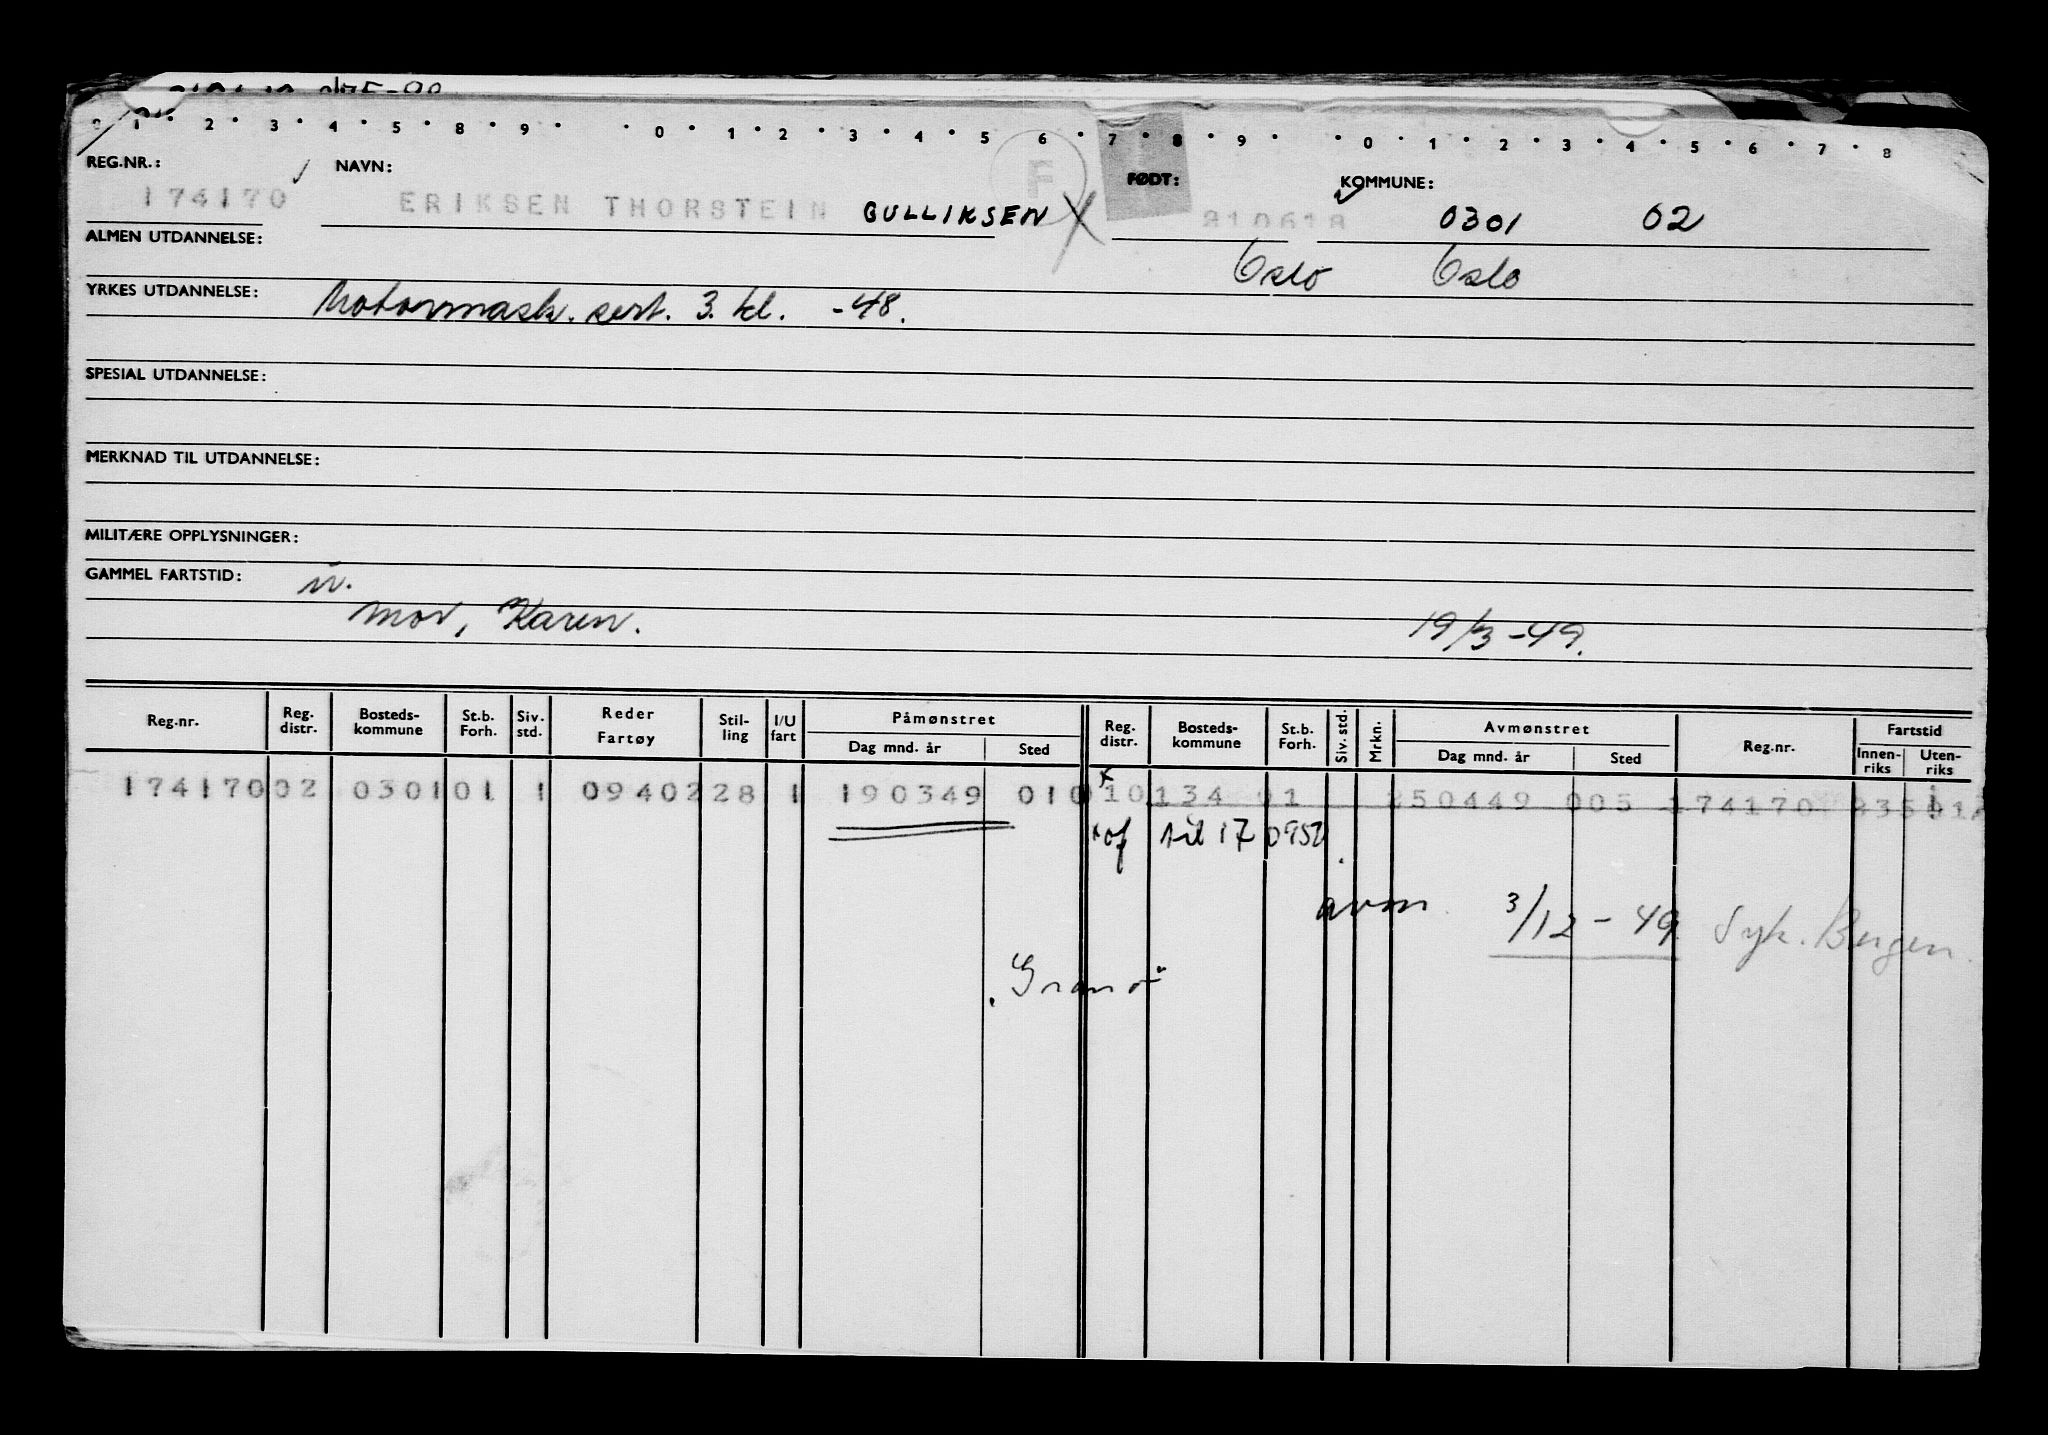 0 1 2 3 4 5 8 9 0 1 2 3 4 5 6 7 8 9 0 1 2 3 4 5 6 7 8
REG.NR.: NAVN: F FØDT: KOMMUNE:
174170 ERIKSEN THORSTEIN GULLIKSEN X 210618 0301 02
ALMEN UTDANNELSE: Oslo Oslo
YRKES UTDANNELSE: Motormask. sert. 3. kl. -48.
SPESIAL UTDANNELSE:
MERKNAD TIL UTDANNELSE:
MILITÆRE OPPLYSNINGER:
GAMMEL FARTSTID:
mor, Karen. 19/3-49.
Reg.nr. Reg. distr. Bosteds-kommune St.b. Forh. Siv. std. Reder Fartøy Stil-ling I/U fart Påmønstret Dag mnd. år Sted Reg. distr. Bosteds-kommune St.b. Forh. Siv. std. Mrkn. Avmønstret Dag mnd. år Sted Reg.nr. Fartstid Innen-riks Uten-riks
174170 02 0301 01 1 09402 28 1 190349 010 10 134 01 250449 005 174170
x of til 17 0952
avm. 3/12-49 Syk. Bergen.
"Granö"